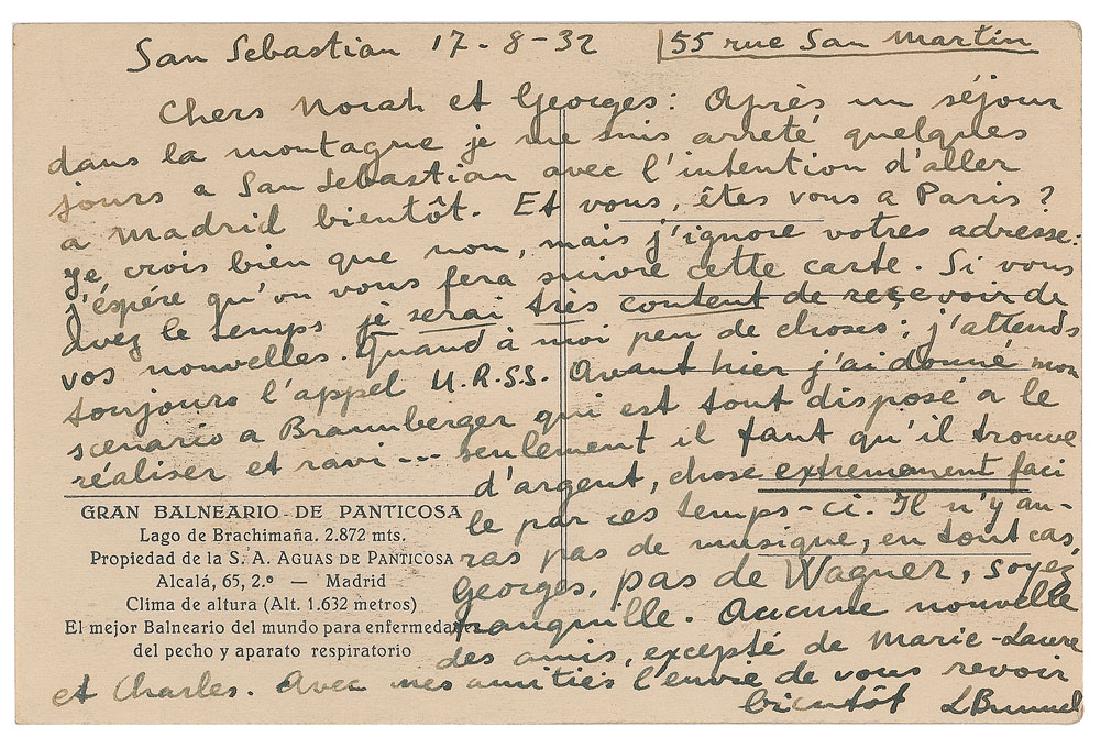 San Sebastian 17-8-32 55 rue San Martin
Chers Norah et Georges: Après un séjour
dans la montagne je me suis arreté quelques
jours a San Sebastian avec l'intention d'aller
a Madrid bientôt. Et vous, êtes vous a Paris?
Je crois bien que non, mais j'ignore votres adresse:
j'éspére qu'on vous fera suivre cette carte. Si vous
avez le temps je serai très content de reçevoir de
vos nouvelles. Quand à moi peu de choses: j'attends
toujours l'appel U.R.S.S. Avant hier j'ai donné mon
scenario a Braunberger qui est tout disposé a le
réaliser et ravi--- seulement il faut qu'il trouve
d'argent, chose extremement faci
le par ces temps-ci. Il n'y au-
ras pas de musique, en tout cas,
Georges, pas de Wagner, soyez
tranquille. Aucune nouvelle
des amis, excepté de Marie-Laure
et Charles. Avec mes amitiés l'envie de vous revoir
bientôt LBunuel
GRAN BALNEARIO DE PANTICOSA
Lago de Brachimaña. 2.872 mts.
Propiedad de la S. A. AGUAS DE PANTICOSA
Alcalá, 65, 2.º — Madrid
Clima de altura (Alt. 1.632 metros)
El mejor Balneario del mundo para enfermedades
del pecho y aparato respiratorio